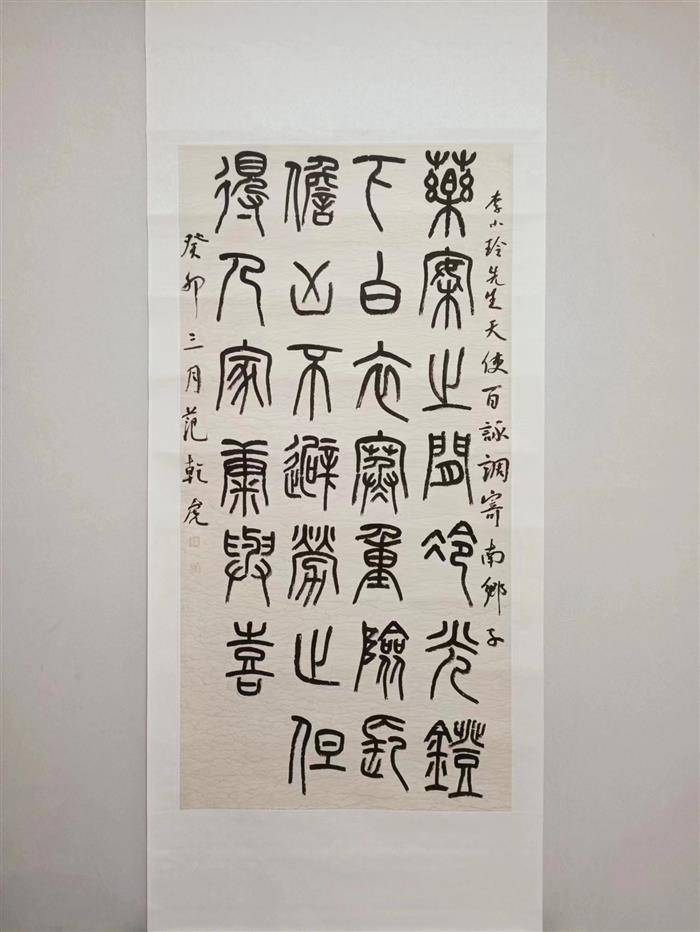 李小玲先生天使百詠調寄南鄉子
藥案之間冷光鐙
下白衣寒重險長
儋凶不避勞止但
得人家康與喜
癸卯三月范乾虎